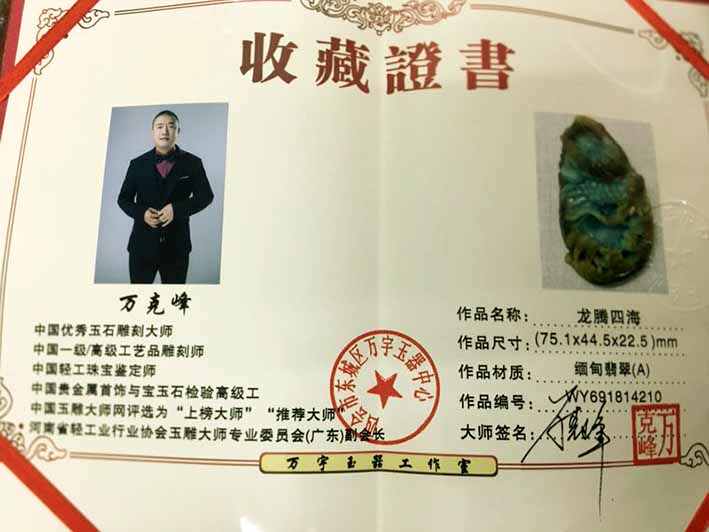 收藏證書
万克峰
中国优秀玉石雕刻大师
中国一级/高级工艺品雕刻师
中国轻工珠宝鉴定师
中国贵金属首饰与宝玉石检验高级工
中国玉雕大师网评选为“上榜大师” “推荐大师”
* 河南省轻工业行业协会玉雕大师专业委员会(广东)副会长
作品名称: 龙腾四海
作品尺寸: (75.1x44.5x22.5)mm
作品材质: 缅甸翡翠(A)
作品编号: WY691814210
大师签名:
万克峰
四会市东城区万宇玉器中心
万宇玉器工作室